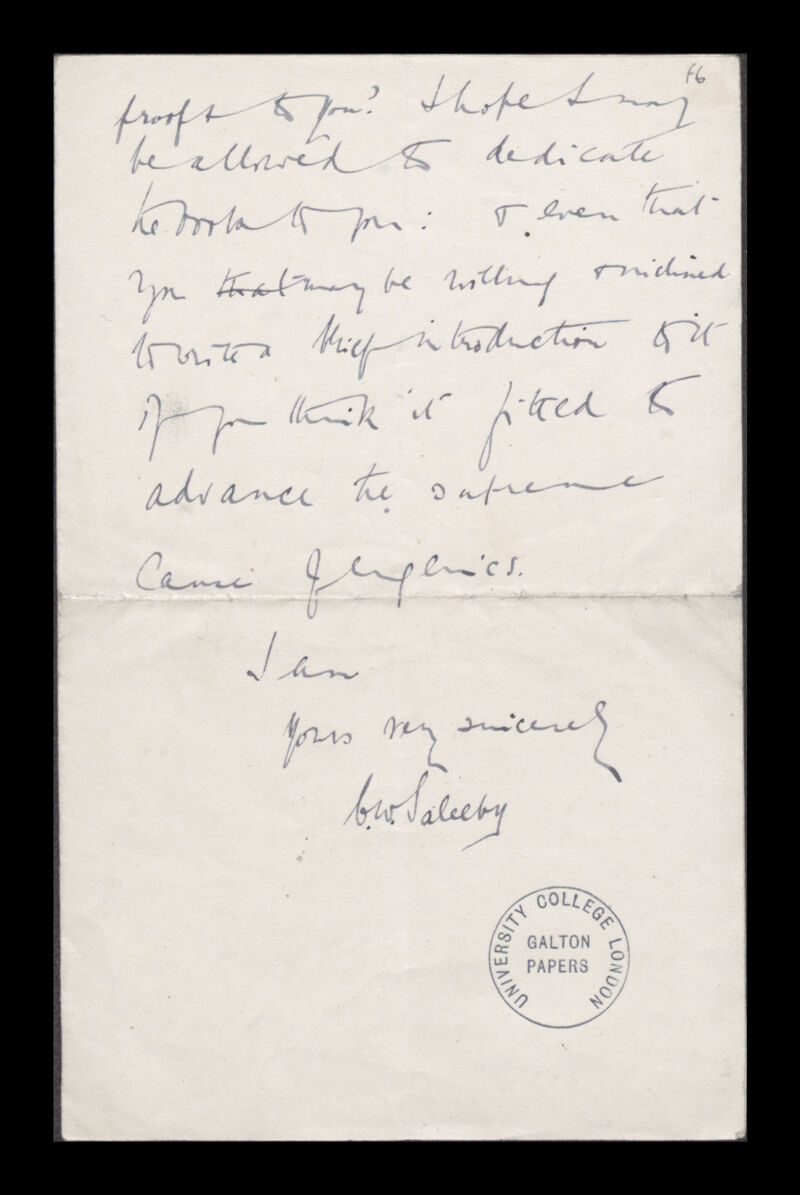 16
proofs to you? I hope I may
be allowed to dedicate
the book to you: & even that
you that may be willing & inclined
to write a brief introduction to it
if you think it fitted to
advance the supreme
Cause of Eugenics.
I am
Yours very sincerely
C.W. Saleeby
UNIVERSITY COLLEGE LONDON
GALTON
PAPERS